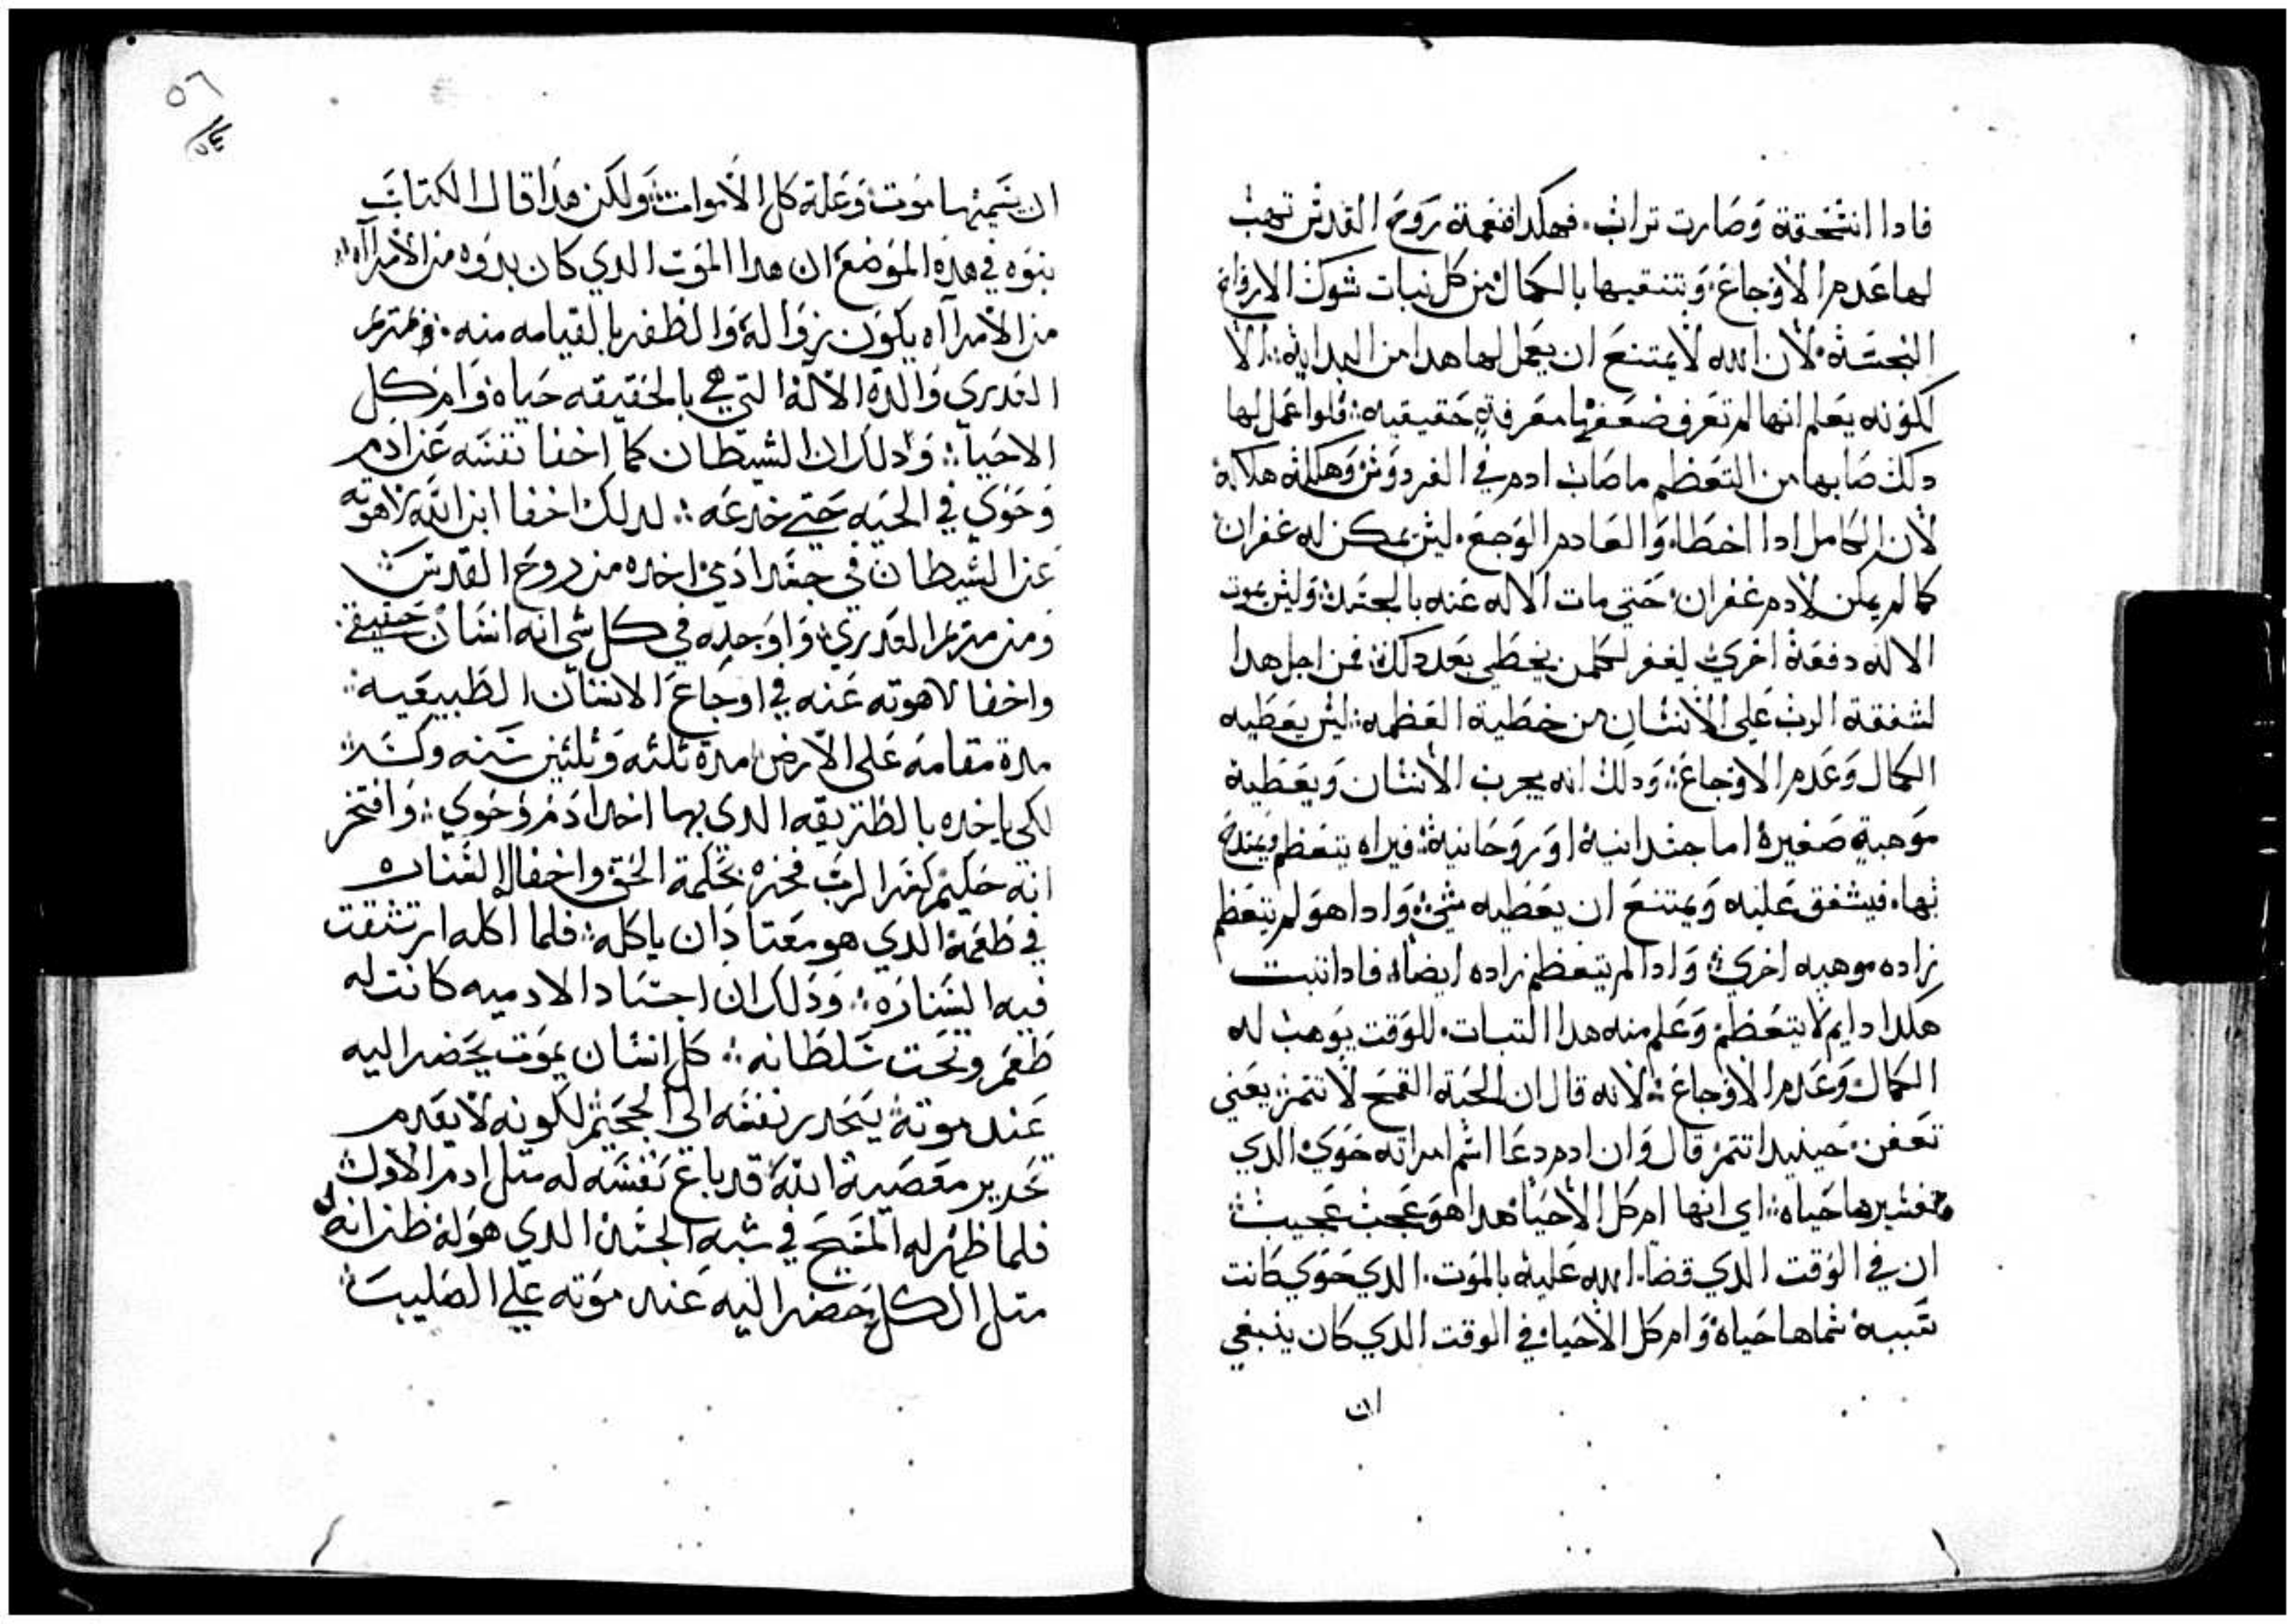 فادا انسحقة وصارت تراب. فهكدا نعمة روح القدس تهب
لها عدم الاوجاع. وبتنقيها بالكمال من كل نبات شوك الارواح
النجسة. لان الله لا يمتنع ان يعمل لها هدا من البدايه. الا
لكونه يعلم انها لم تعرف ضعفها معرفة حقيقيه. فلوا عمل لها
دلك صابها من التعظم ما صاب ادم في الفردوس وهلكه هلاكه
لان الكامل ادا اخطا. والعادم الوجع. ليس يمكن له غفران
كما لم يمكن لادم غفران. حتي مات الاله عنه بالجسد. وليس يموت
الاله دفعة اخري. ليغفر لكلمن يخطي بعد دلك. فمن اجل هدا
لشفقة الرب علي الانسان من خطية العظمه. ليس يعطيه
الكمال وعدم الاوجاع. ودلك انه يجرب الانسان ويعطية
موهبة صغيرة اما جسدانية او روحانية. فيراه يتعظم ويمتدح
بها. فيشفق عليه ويمتنع ان يعطيه شي. وادا هو لم يتعظم
زاده موهبه اخري. وادا لم يتعظم زاده ايضا. فادا ثبت
هكدا دايم لا يتعظم. وعلم منه هدا التبات. للوقت يوهب له
الكمال وعدم الاوجاع. لانه قال ان الحبة القمح لا تتمر يعني
تعفن. حينيدا تتمر قال وان ادم دعا اسم امراته حوي. الدي
تفسيرها حياه. اي انها ام كل الاحيا. هدا هو عجب عجيب
ان في الوقت الدي قضا الله عليه بالموت. الدي حوي كانت
سببه. سماها حياه وام كل الاحيا. وفي الوقت الدي كان ينبغي
ان
٥٦
ان يسميها موت. وعلة كل الاموات. ولكن هدا قال الكتاب
بنوه في هده الموضع. ان هدا الموت الدي كان بدوه من الامراآه
من الامراآه يكون زواله. والظفر بالقيامه منه. ومريم
العدري والدة الاله التي هي بالحقيقه حياه. وام كل
الاحيا. ودلك ان الشيطان كما اخفا نفسه عن ادم
وحوي في الحيه حتي خدعه. لدلك اخفا ابن الله لاهوته
عن الشيطان في جسد ادمي. اخده من روح القدس
ومن مريم العدري. واوجده في كل شي انه انسان حقيقي.
واخفا لاهوته عنه في اوجاع الانسان الطبيعيه.
مدة مقامه علي الارض. مدة تلته وتلتين سنه وكسر.
لكي ياخده بالطريقه الدي بها اخد ادم وحوي. وافتخر
انه حكيم كفر الرب فخره بحكمة الحق واخفا له السناره
في طعمه. الدي هو معتاد ان ياكله. فلما اكله ارتشقت
فيه السناره. ودلك ان اجساد الادميه كانت له
طعم وتحت سلطانه. كل انسان يموت يحضر اليه
عند موته يتحدر نفسه الي الجحيم لكونه لا يعدم
تحدير معصية الله. قد باع نفسه له متل ادم الاول
فلما ظهر له المسيح في شبه الجسد. الدي هو له ظن انه
متل الكل. حضر اليه عند موته علي الصليب